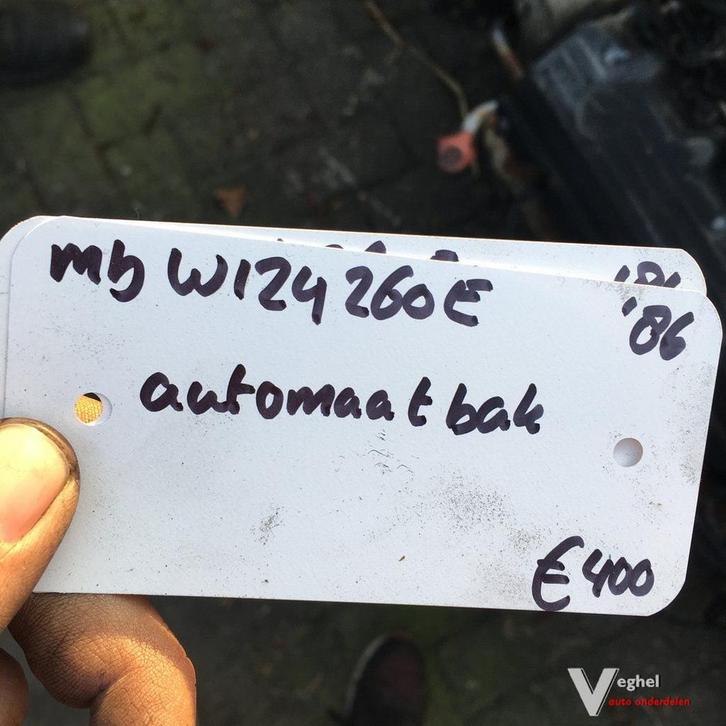 mb W124 260E '86
automaatbak
€400
Veghel
auto onderdelen